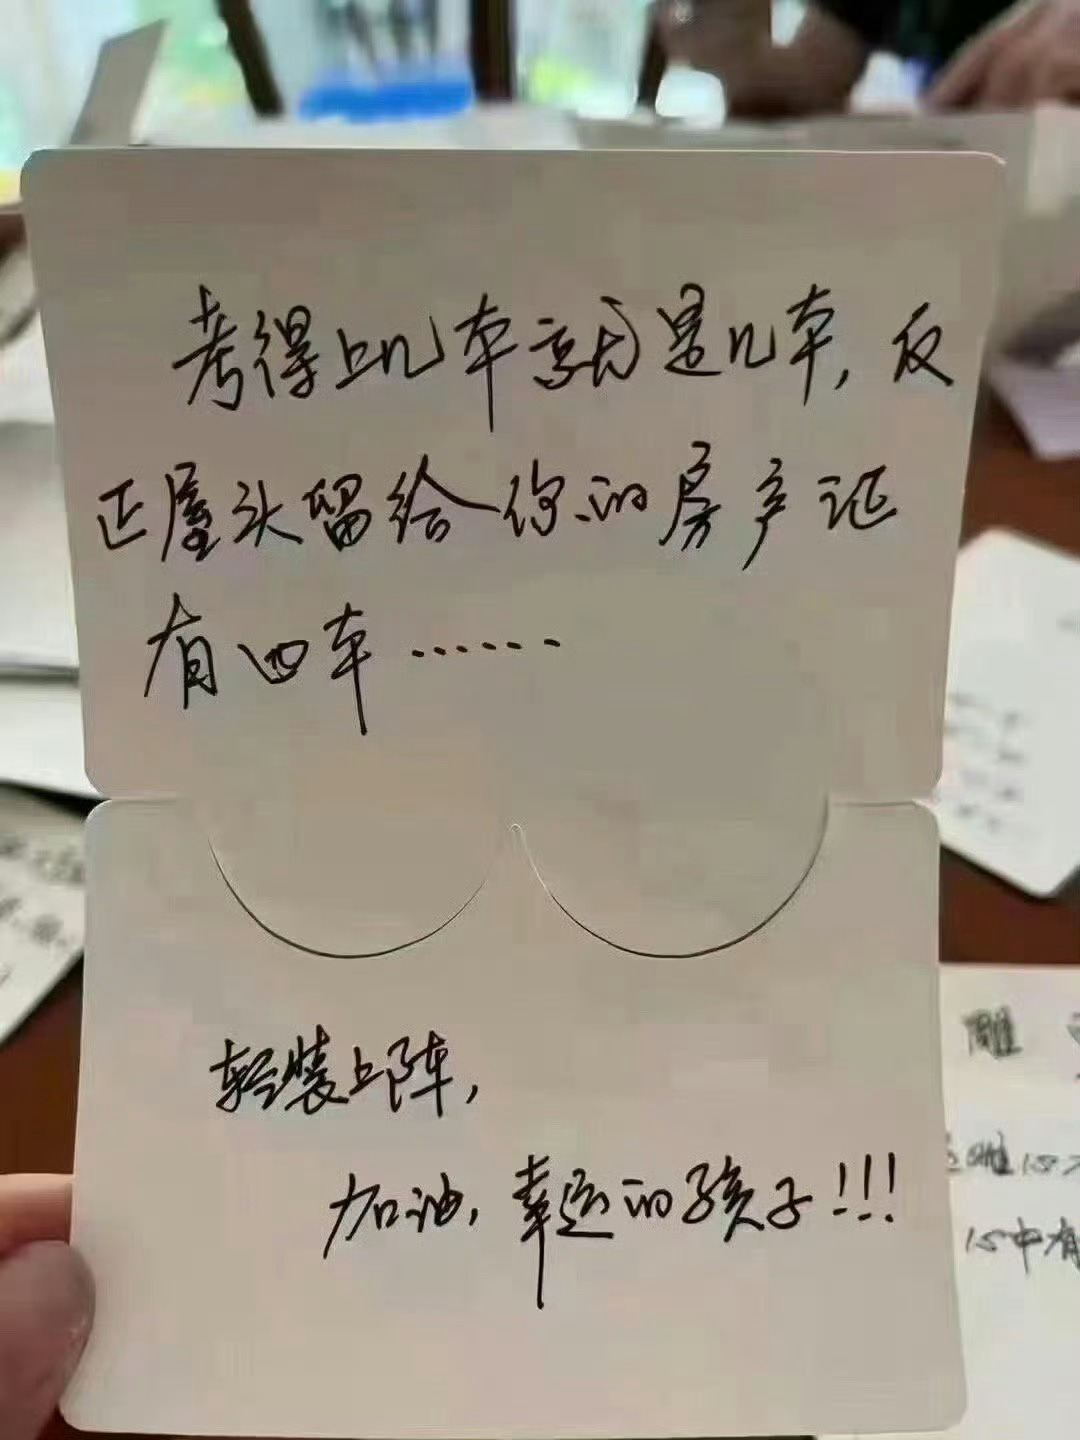 考得上几本就是几本，反
正屋头留给你的房产证
有四本……
轻装上阵，
加油，幸运的孩子!!!
雕
心中有